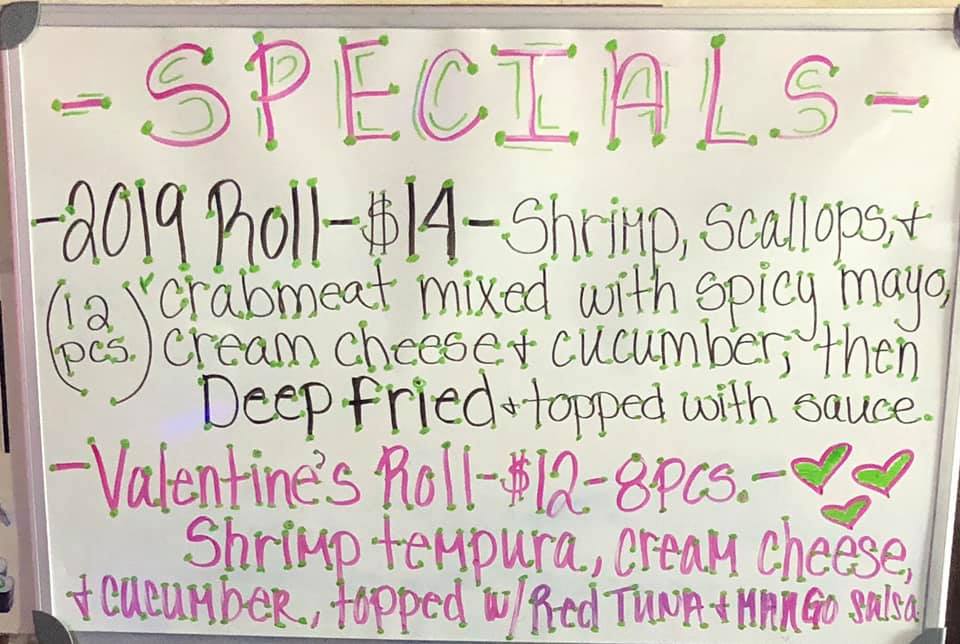 - SPECIALS -
- 2019 Roll - $14 - Shrimp, scallops, +
(12 pcs.) crabmeat mixed with spicy mayo,
cream cheese + cucumber, then
Deep fried + topped with sauce.
- Valentine's Roll - $12 - 8pcs. -
Shrimp tempura, cream cheese,
+ cucumber, topped w/ Red TUNA + MANGO salsa